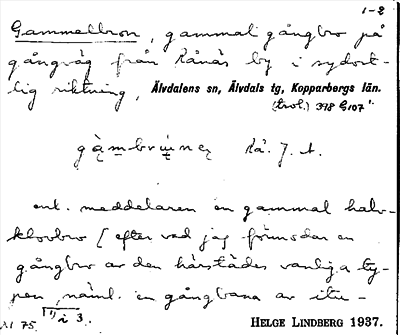 1-2
Gammelbron, gammal gångbro på
gångväg från Rånäs by i sydost-
lig riktning, Älvdalens sn, Älvdals tg, Kopparbergs län.
398
Rå. J. A.
enl. meddelaren en gammal halv-
klovbro [efter vad jag förmodar en
gångbro av den härstädes vanliga ty-
pen, näml. en gångbana av itu-
HELGE LINDBERG 1937.